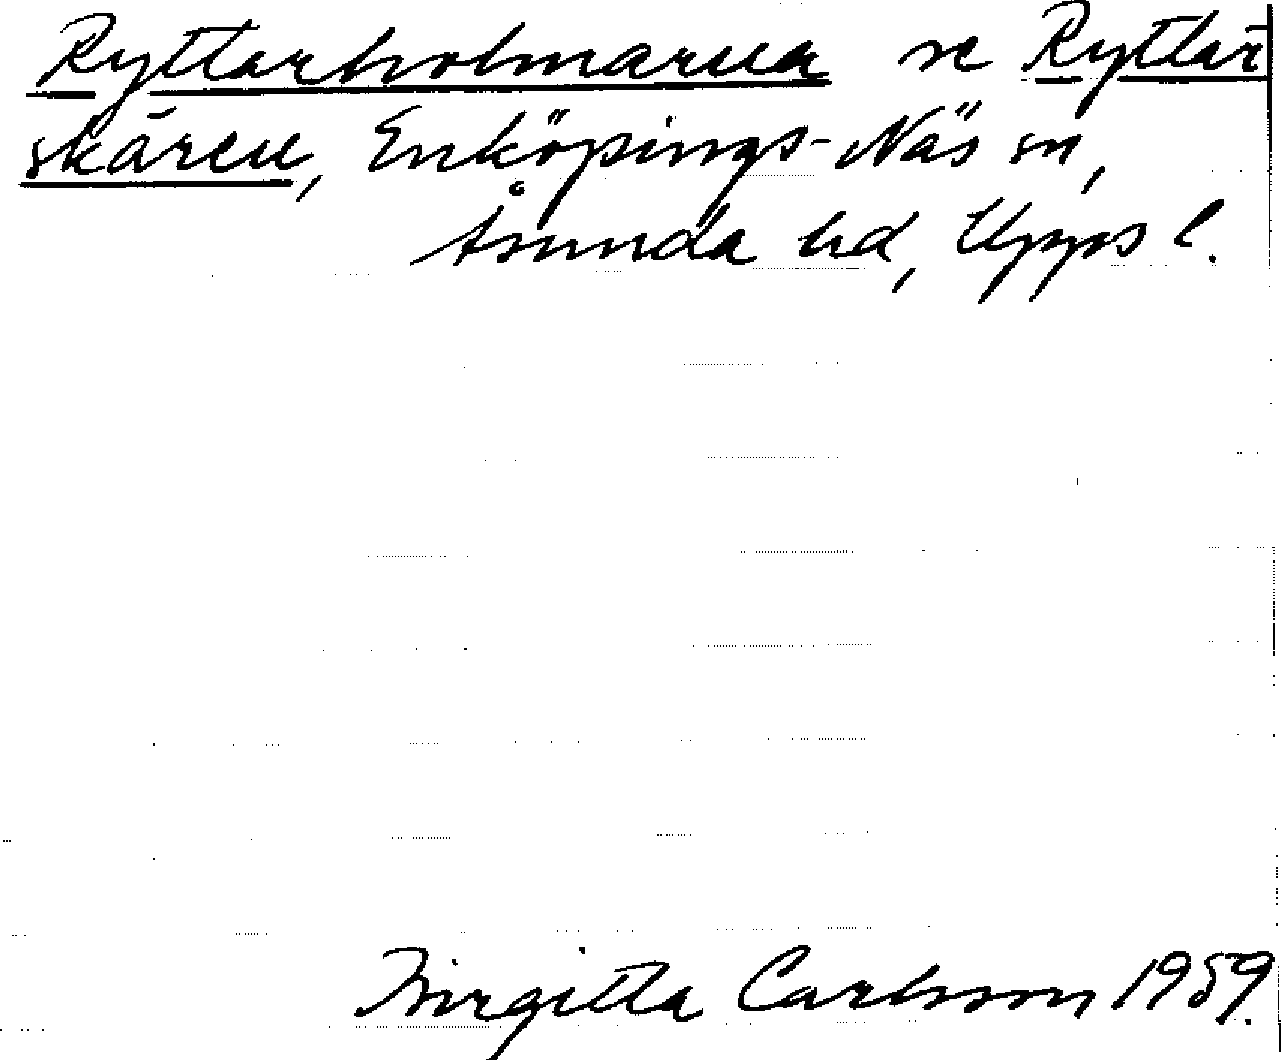 Ryttarholmarna se Ryttar
skären, Enköpings-Näs sn,
Åsunda hd, Upps l.
Birgitta Carlsson 1959.